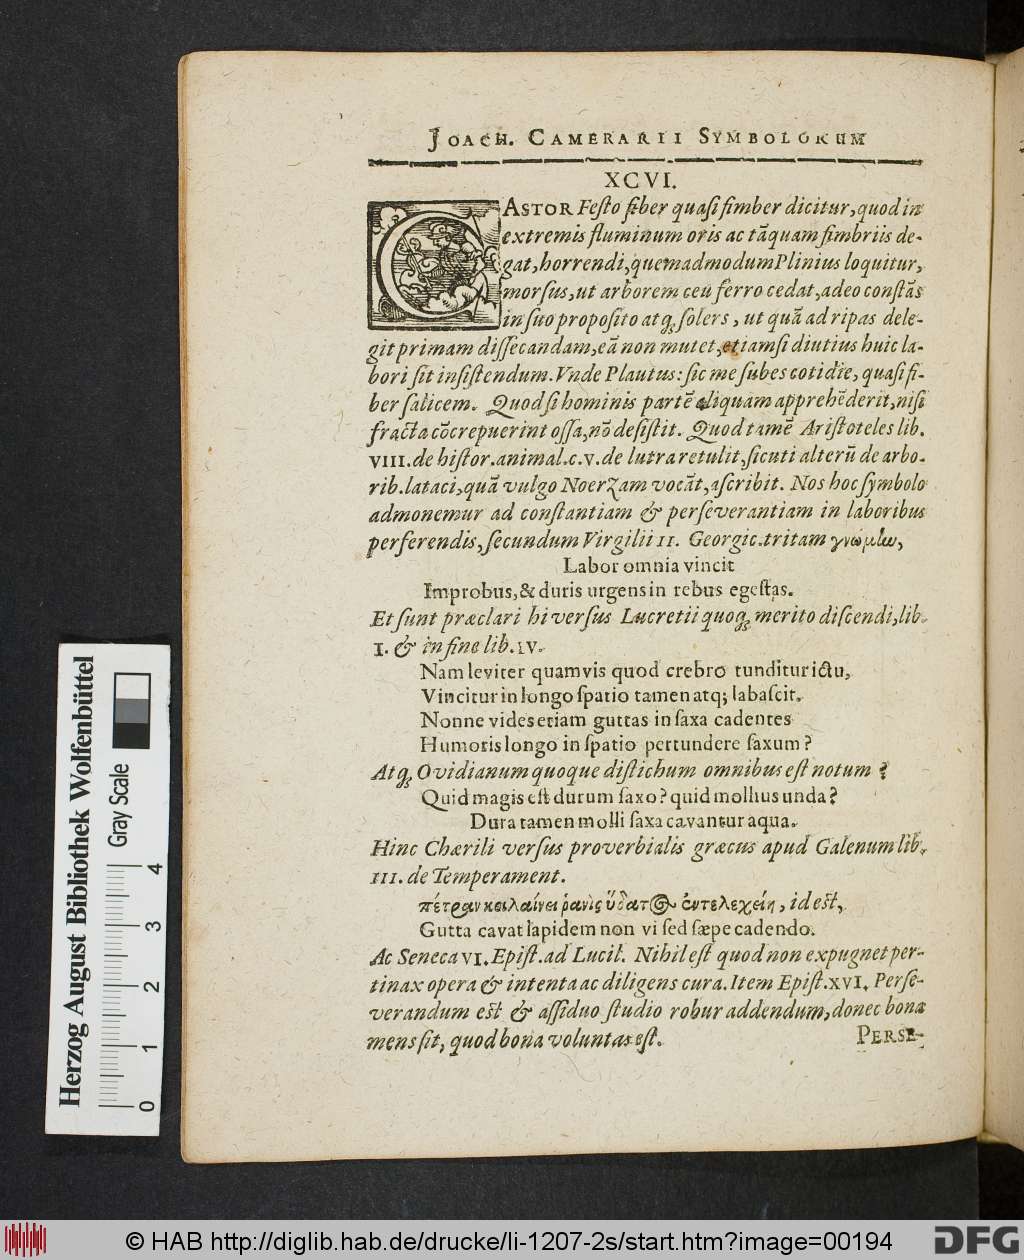 JOACH. CAMERARII SYMBOLORUM
XCVI.
CASTOR Festo fiber quasi fimber dicitur, quod in
extremis fluminum oris ac tāquam fimbriis de-
gat, horrendi, quemadmodum Plinius loquitur,
morsus, ut arborem ceu ferro cedat, adeo constās
in suo proposito atq; solers, ut quā ad ripas dele-
git primam dissecandam, eā non mutet, etiamsi diutius huic la-
bori sit insistendum. Vnde Plautus: sic me subes cotidie, quasi fi-
ber salicem. Quod si hominis partē aliquam apprehēderit, nisi
fracta cōcrepuerint ossa, nō desistit. Quod tamē Aristoteles lib.
VIII. de histor. animal. c. v. de lutra retulit, sicuti alterū de arbo-
rib. lataci, quā vulgo Noerzam vocāt, ascribit. Nos hoc symbolo
admonemur ad constantiam & perseverantiam in laboribus
perferendis, secundum Virgilii II. Georgic. tritam γνώμω,
Labor omnia vincit
Improbus, & duris urgens in rebus egestas.
Et sunt præclari hi versus Lucretii quoq; merito discendi, lib.
I. & in fine lib. IV.
Nam leviter quamvis quod crebro tunditur ictu,
Vincitur in longo spatio tamen atq; labascit.
Nonne vides etiam guttas in saxa cadentes
Humoris longo in spatio pertundere saxum?
Atq; Ovidianum quoque distichum omnibus est notum?
Quid magis est durum saxo? quid mollius unda?
Dura tamen molli saxa cavantur aqua.
Hinc Chærili versus proverbialis græcus apud Galenum lib.
III. de Temperament.
πέτραν κοιλαίνει ῥανὶς ὕδατος ἐντελεχείη, id est,
Gutta cavat lapidem non vi sed sæpe cadendo.
Ac Seneca VI. Epist. ad Lucil. Nihil est quod non expugnet per-
tinax opera & intenta ac diligens cura. Item Epist. XVI. Perse-
verandum est & assiduo studio robur addendum, donec bona
mens sit, quod bona voluntas est.
PERSE-
Herzog August Bibliothek Wolfenbüttel
Gray Scale
0 1 2 3 4
© HAB http://diglib.hab.de/drucke/li-1207-2s/start.htm?image=00194
DFG